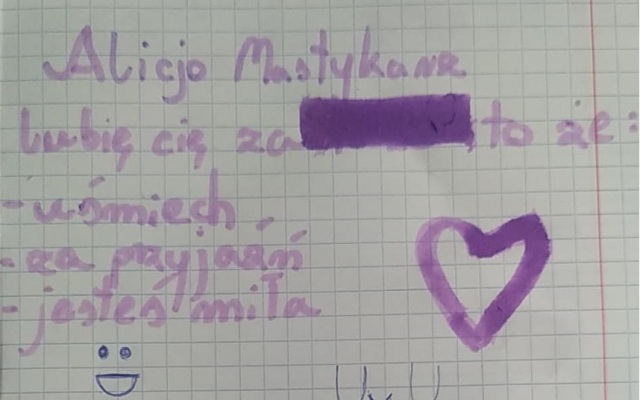 Alicjo Mastykarz
Lubię cię za to że:
- uśmiech
- za przyjaźń
- jesteś miła
UwU